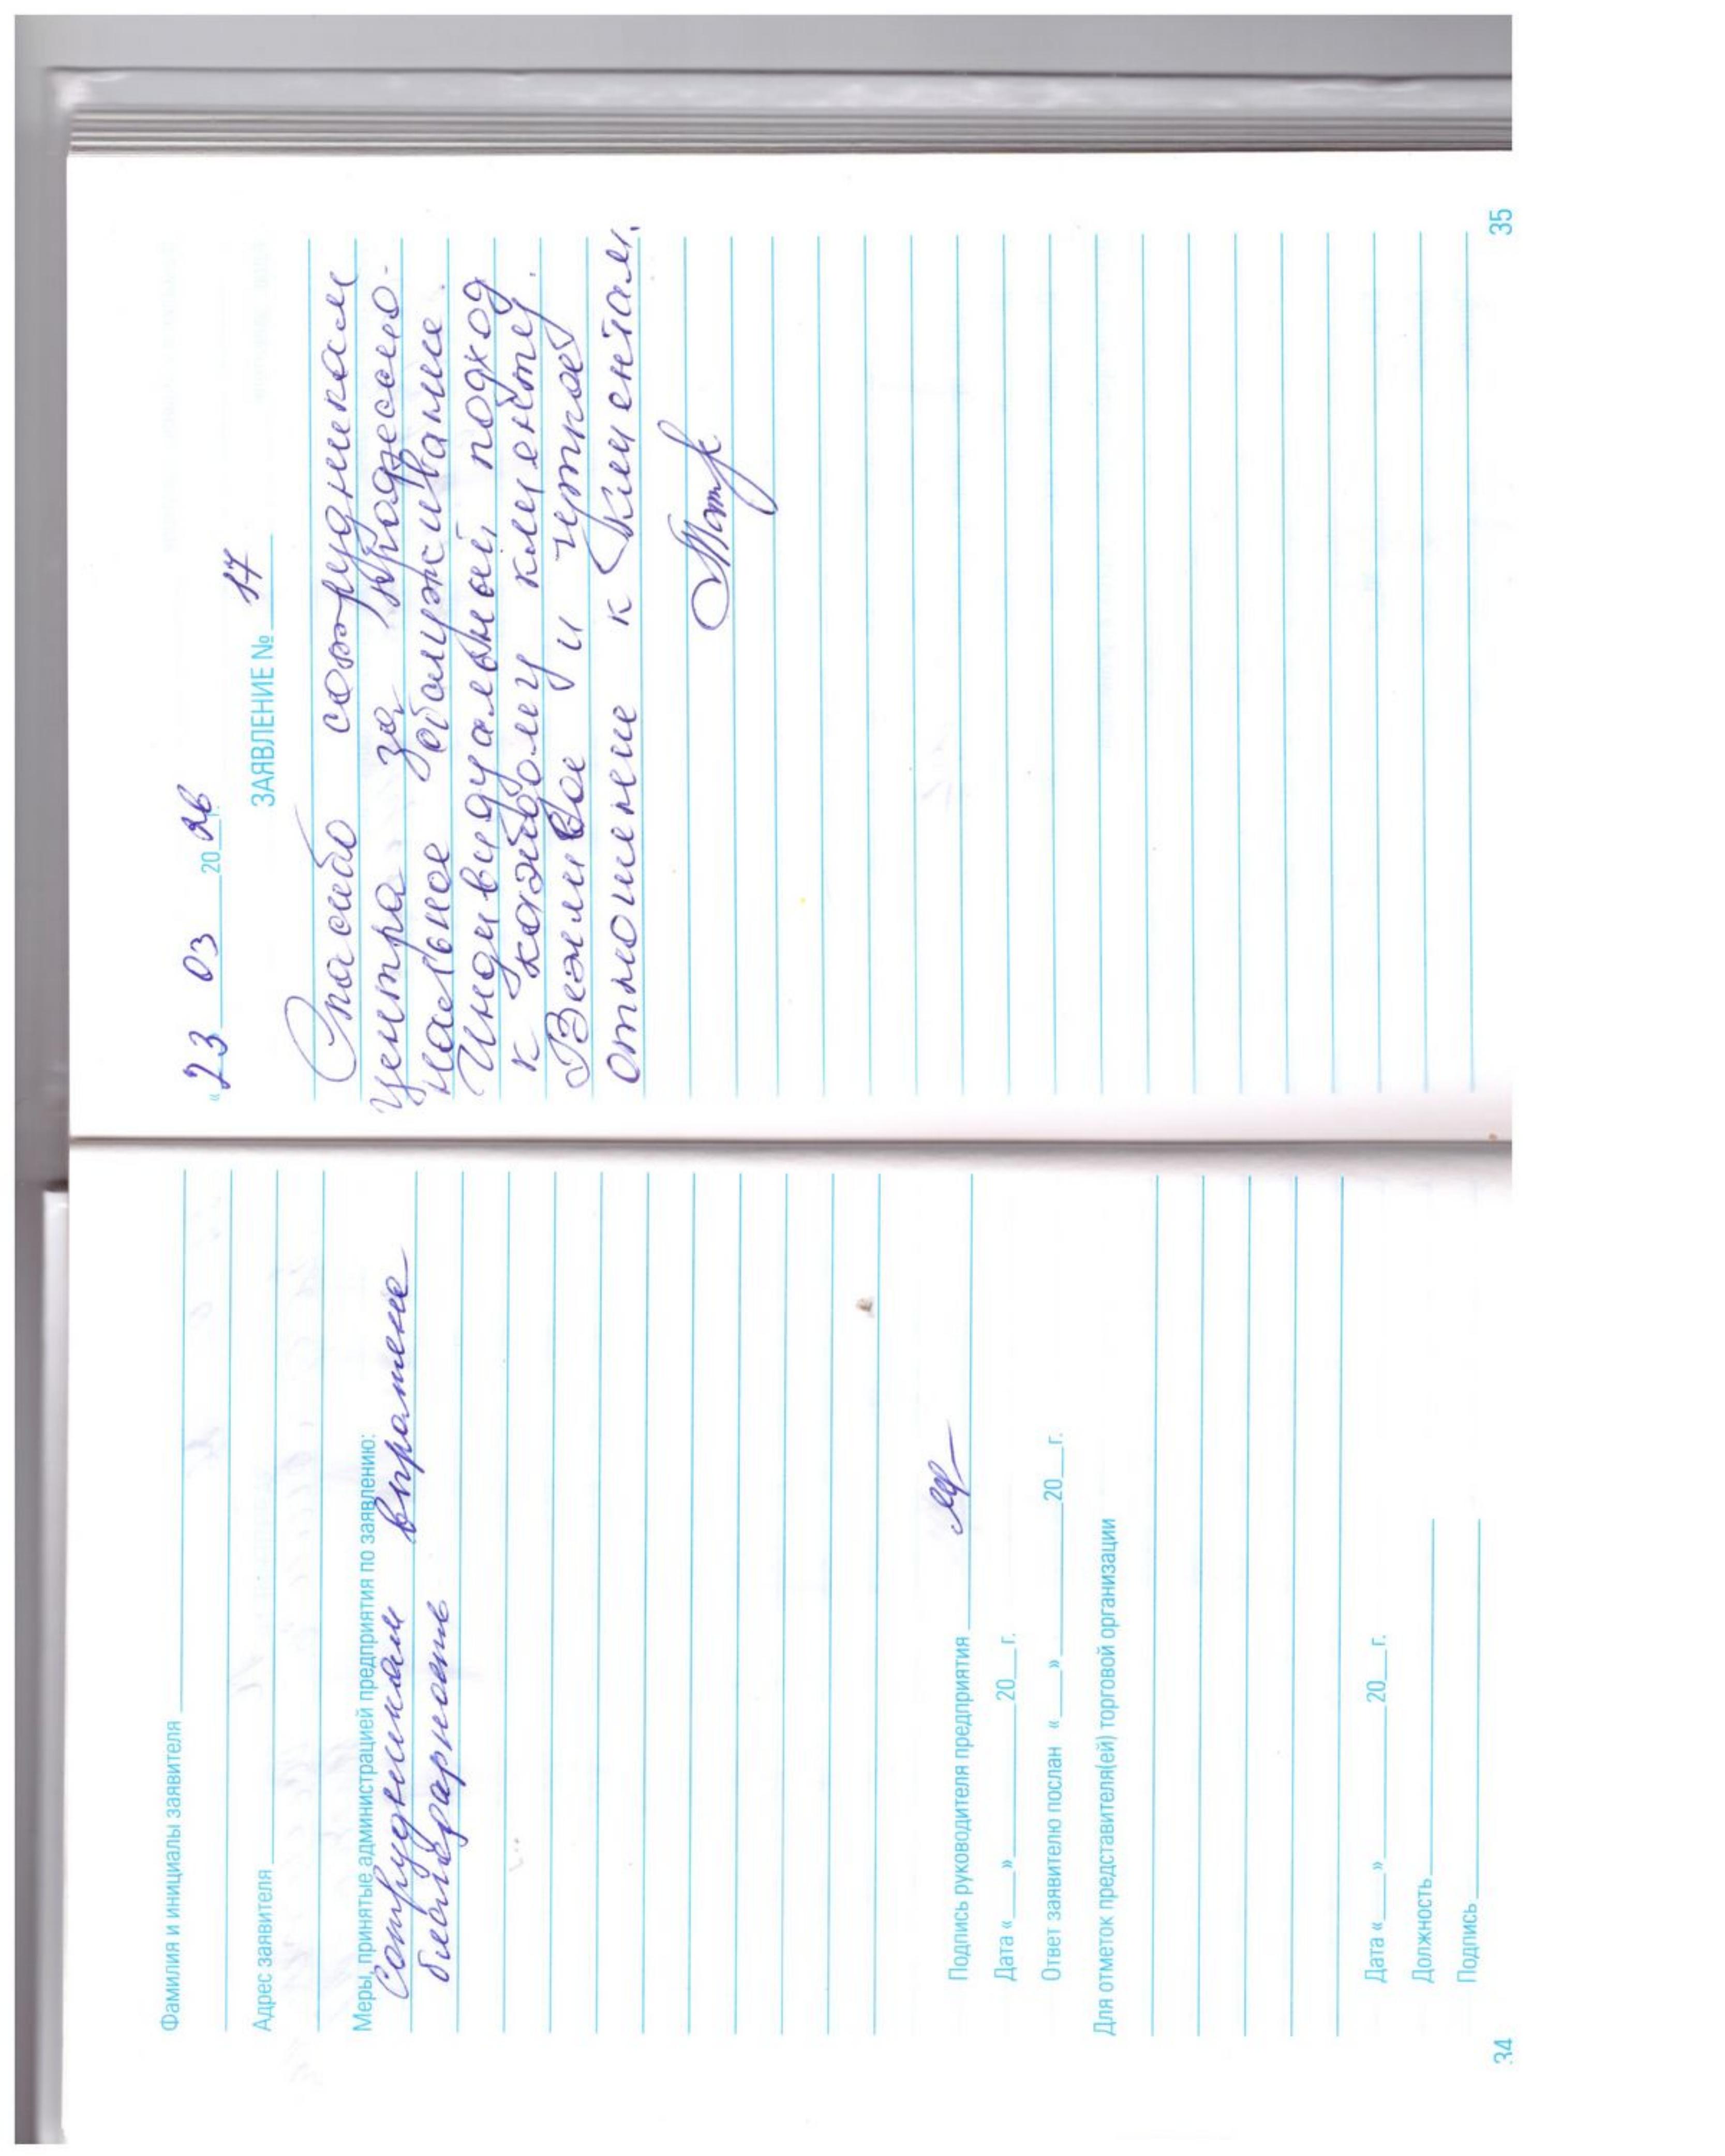 Фамилия и инициалы заявителя
Адрес заявителя
Меры, принятые администрацией предприятия по заявлению:
Сотрудникам выражена
благодарность
Подпись руководителя предприятия
Дата «___»________20__г.
Ответ заявителю послан «___»________20__г.
Для отметок представителя(ей) торговой организации
Дата «___»________20__г.
Должность
Подпись
34
«23 03 2026
ЗАЯВЛЕНИЕ № 17
Спасибо сотрудникам
центра за профессио-
нальное обслуживание.
Индивидуальный подход
к каждому клиенту.
Вежливое и чуткое
отношение к клиентам.
35